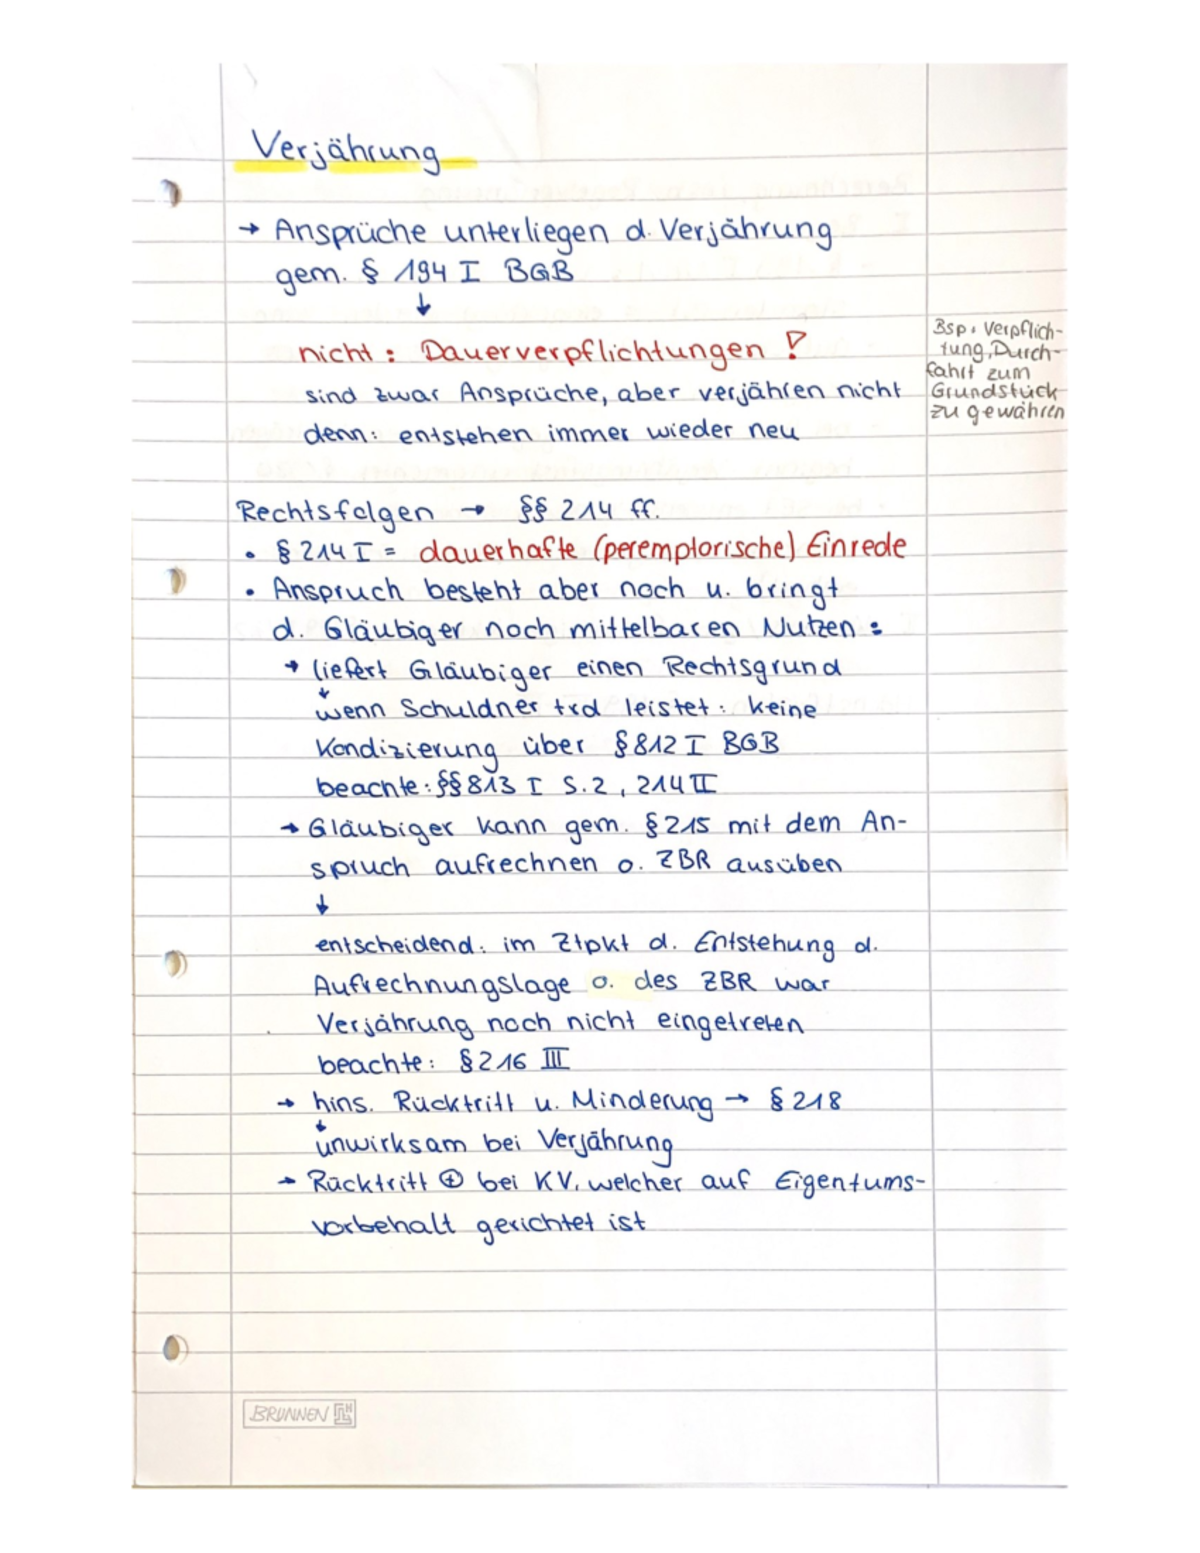 Verjährung
→ Ansprüche unterliegen d. Verjährung
gem. § 194 I BGB
↓
nicht: Dauerverpflichtungen !
sind zwar Ansprüche, aber verjähren nicht
denn: entstehen immer wieder neu
Bsp. Verpflich-
tung, Durch-
fahrt zum
Grundstück
zu gewähren
Rechtsfolgen → §§ 214 ff.
• § 214 I = dauerhafte (peremptorische) Einrede
• Anspruch besteht aber noch u. bringt
d. Gläubiger noch mittelbaren Nutzen:
→ liefert Gläubiger einen Rechtsgrund
↓
wenn Schuldner trd leistet: keine
Kondizierung über § 812 I BGB
beachte: §§ 813 I S. 2, 214 II
→ Gläubiger kann gem. § 215 mit dem An-
spruch aufrechnen o. ZBR ausüben
↓
entscheidend: im Ztpkt d. Entstehung d.
Aufrechnungslage o. des ZBR war
Verjährung noch nicht eingetreten
beachte: § 216 III
→ hins. Rücktritt u. Minderung → § 218
↓
unwirksam bei Verjährung
→ Rücktritt ⊕ bei KV, welcher auf Eigentums-
vorbehalt gerichtet ist
BRUNNEN